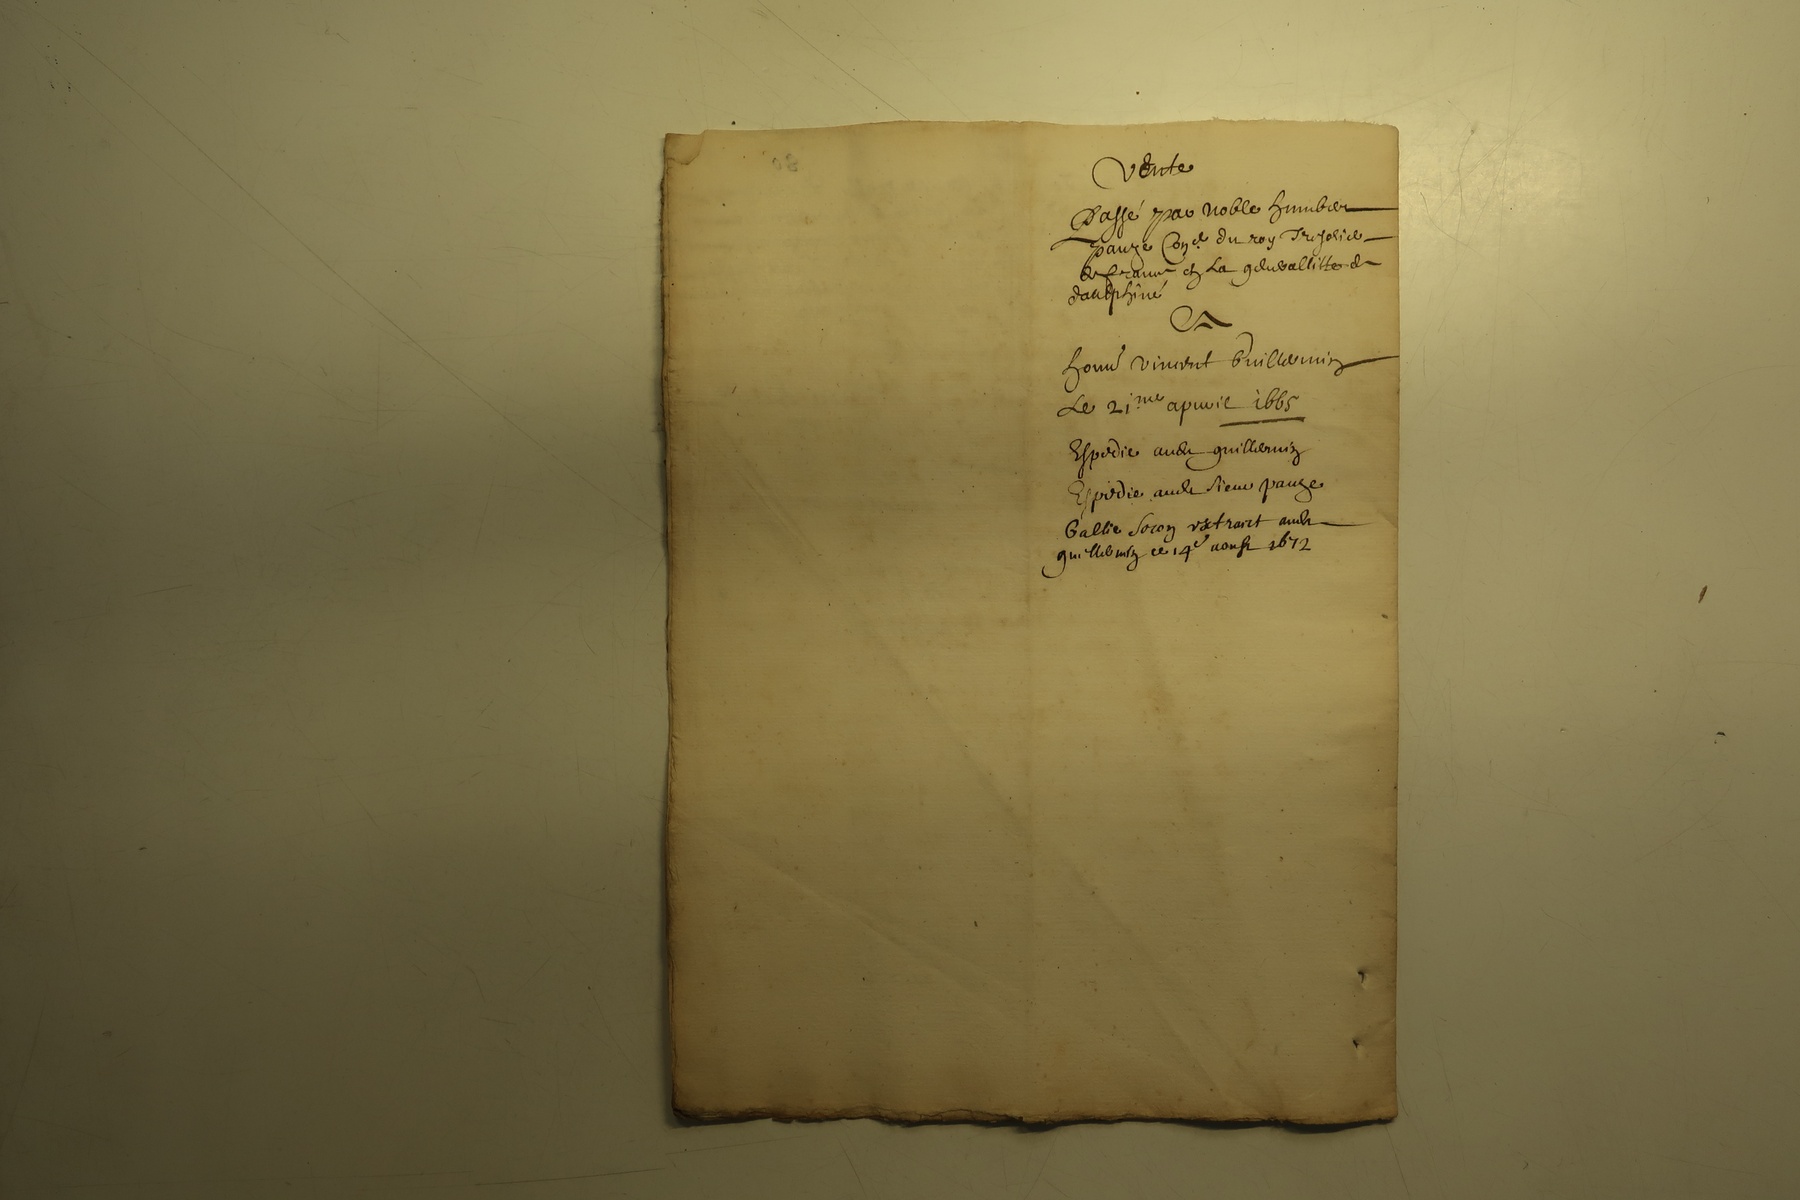 Vente
Passé par noble humber
pauze Con.er du roy Tresorier
de france en La generallitte de
dauphiné
A
honn.e vincent Guillermin
Le 21.me apvril 1665
Expedie audit guillermin
Expedie audit sieur pauze
extraict audit
guillermin ce 14e aoust 1672